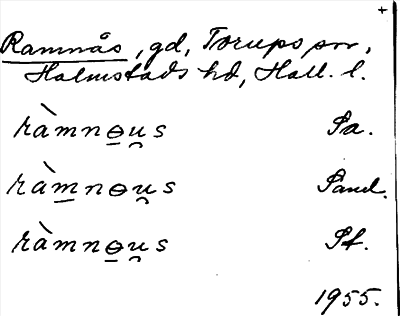 +
Ramnås, gd, Torups sn,
Halmstads hd, Hall. l.
ràmnɵ̲u̯s Sa.
ràm̲nɵu̯s Sand.
ràmnɵ̲u̯s St.
1955.